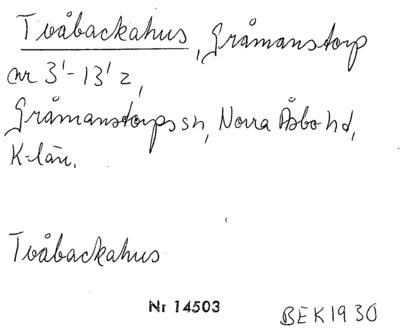 Tvåbackahus, Gråmanstorp
nr 3¹-13¹2,
Gråmanstorps sn, Norra Åsbo hd,
K-län.
Tvåbackahus
Nr 14503
BEK1930